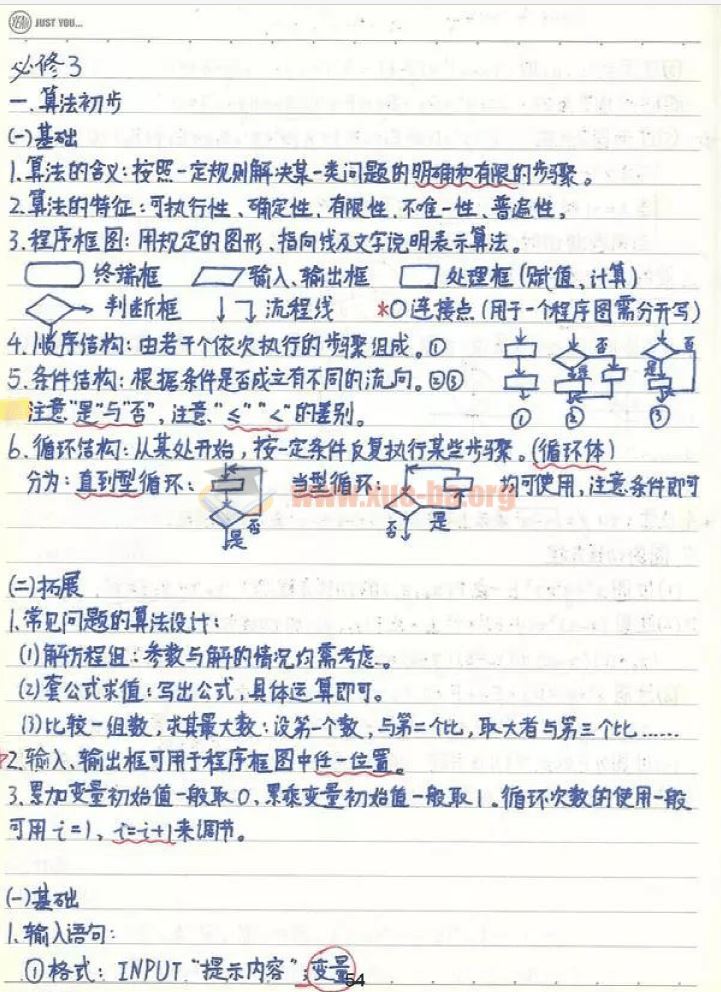 YEAH JUST YOU...
必修3
一.算法初步
(一)基础
1.算法的含义:按照一定规则解决某一类问题的明确和有限的步骤。
2.算法的特征:可执行性、确定性、有限性、不唯一性、普遍性。
3.程序框图:用规定的图形、指向线及文字说明表示算法。
终端框 输入、输出框 处理框(赋值、计算)
判断框 流程线 *○连接点(用于一个程序图需分开写)
4.顺序结构:由若干个依次执行的步骤组成。① 否 否
5.条件结构:根据条件是否成立有不同的流向。②③ 是 是
注意"是"与"否",注意"≤""<"的差别。 ① ② ③
6.循环结构:从某处开始,按一定条件反复执行某些步骤。(循环体)
分为:直到型循环: 否 是 当型循环: 否 是 均可使用,注意条件即可
www.xue-ba.org
(二)拓展
1.常见问题的算法设计:
(1)解方程组:参数与解的情况均需考虑。
(2)套公式求值:写出公式,具体运算即可。
(3)比较一组数,求其最大数:设第一个数,与第二个比,取大者与第三个比……
2.输入、输出框可用于程序框图中任一位置。
3.累加变量初始值一般取0,累乘变量初始值一般取1。循环次数的使用一般
可用i=1、i=i+1来调节。
(一)基础
1.输入语句:
①格式:INPUT "提示内容";变量
54